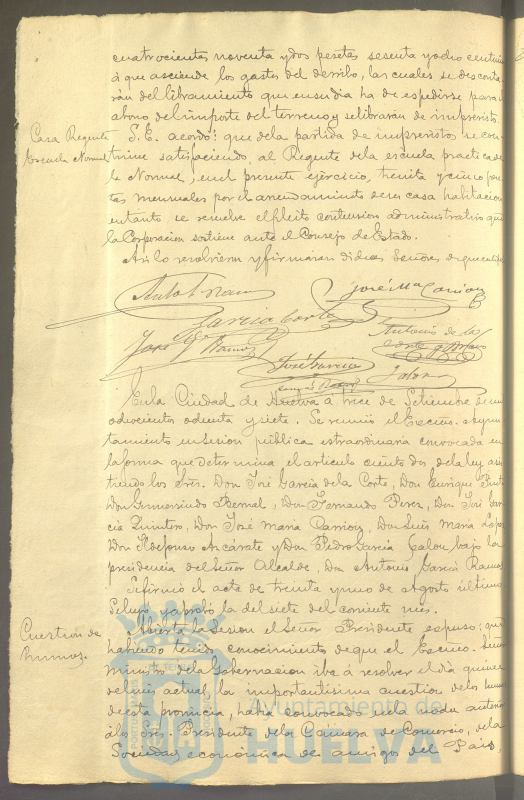 cuatrocientas noventa y dos pesetas sesenta y ocho centimos
á que asciende los gastos del derribo, las cuales se desconta
rán del libramiento que en su dia ha de expedirse para
abono del importe del terreno y se librarán de imprevistos.
Casa Regente
Escuela Normal
S. E. acordó: que de la partida de imprevistos se con
tinue satisfaciendo, al Regente de la escuela practica de
la Normal, en el presente ejercicio, treinta y cinco pese
tas mensuales por el arrendamiento de su casa habitacion
en tanto se resuelve el pleito contencioso administrativo que
la Corporacion sostiene ante el Consejo de Estado.
Asi lo resolvieron y firmaran dichos Señores, de que certifico
José Mª Carrion
Garcia Corte
Antonio de la
Corte
José
Ramos
José Garcia
En la Ciudad de Huelva a trece de Setiembre de mil
ochocientos ochenta y siete. Se reunió el Excmo. Ayun
tamiento en sesion pública extraordinaria convocada en
la forma que determina el articulo ciento dos de la ley asis
tiendo los Sres. Don José Garcia de la Corte, Don Enrique
Don Gumersindo Bernal, Don Fernando Perez, Don José Gar
cia Quintero, Don José Maria Carrion, Don Luis Maria Lopez
Don Ildefonso Azcárate y Don Pedro Garcia Jalon bajo la
presidencia del Señor Alcalde, Don Antonio Garcia Ramos
Se firmó el acta de treinta y uno de Agosto último
Se leyó y aprobó la del siete del corriente mes.
Cuestion de
humos.
Abierta la sesion el Señor Presidente expuso; que
habiendo tenido conocimiento de que el Excmo. Señor
Ministro de la Gobernacion iba á resolver el dia quince
del mes actual, la importantisima cuestion de los humos
de esta provincia, habia convocado en la noche anterior
á los Sres. Presidente de la Cámara de Comercio, de la
Sociedad económica de amigos del Pais
Ayuntamiento de
HUELVA